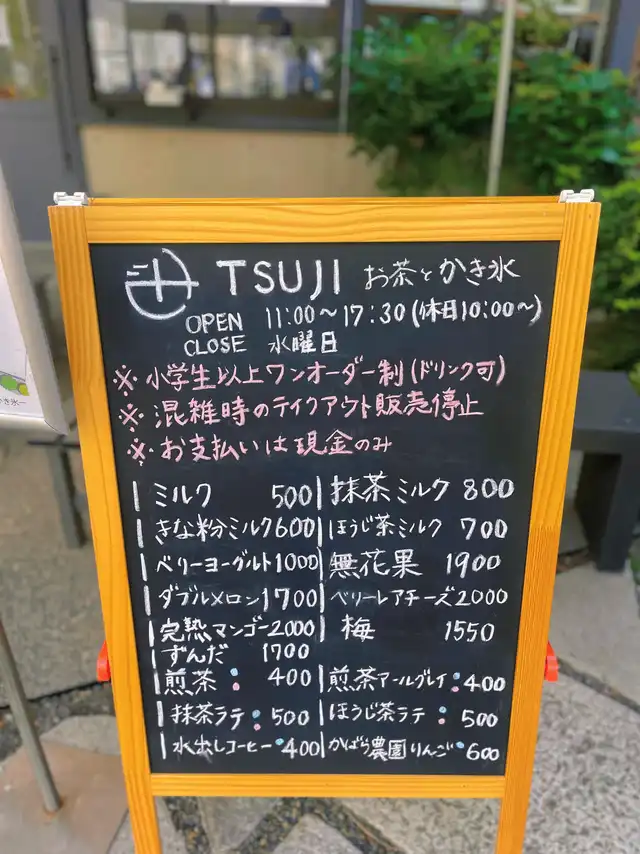 TSUJI お茶とかき氷
OPEN 11:00〜17:30(休日10:00〜)
CLOSE 水曜日
※小学生以上ワンオーダー制(ドリンク可)
※混雑時のテイクアウト販売停止
※お支払いは現金のみ
ミルク 500 抹茶ミルク 800
きな粉ミルク 600 ほうじ茶ミルク 700
ベリーヨーグルト 1000 無花果 1900
ダブルメロン 1700 ベリーレアチーズ 2000
完熟マンゴー 2000 梅 1550
ずんだ 1700
煎茶 : 400 煎茶アールグレイ : 400
抹茶ラテ : 500 ほうじ茶ラテ : 500
水出しコーヒー 400 かばら農園りんご 600
き氷ー